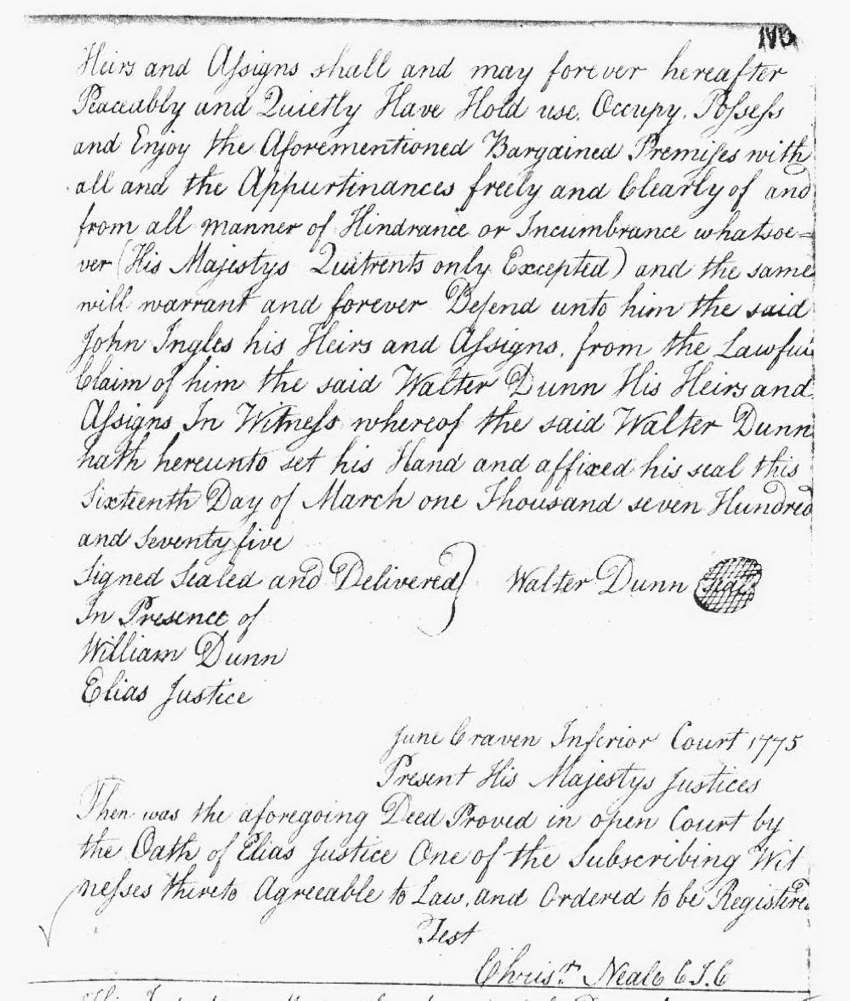 Heirs and Assigns shall and may forever hereafter
Peaceably and Quietly Have Hold use, Occupy, Possess
and Enjoy the Aforementioned Bargained Premises with
all and the Appurtinances freely and Clearly of and
from all manner of Hindrance or Incumbrance whatsoe=
ver (His Majestys Quitrents only Excepted) and the same
will warrant and forever Defend unto him the said
John Ingles his Heirs and Assigns, from the Lawful
Claim of him the said Walter Dunn His Heirs and
Assigns In Witness whereof the said Walter Dunn
hath hereunto set his Hand and affixed his seal this
Sixteenth Day of March one Thousand seven Hundred
and Seventy five
Signed Sealed and Delivered} Walter Dunn Seal
In Presence of
William Dunn
Elias Justice
June Craven Inferior Court 1775
Present His Majestys Justices
Then was the aforegoing Deed Proved in open Court by
the Oath of Elias Justice One of the Subscribing Wit
nesses thereto Agreeable to Law, and Ordered to be Registere
Test
Chrisr. Neale C I C